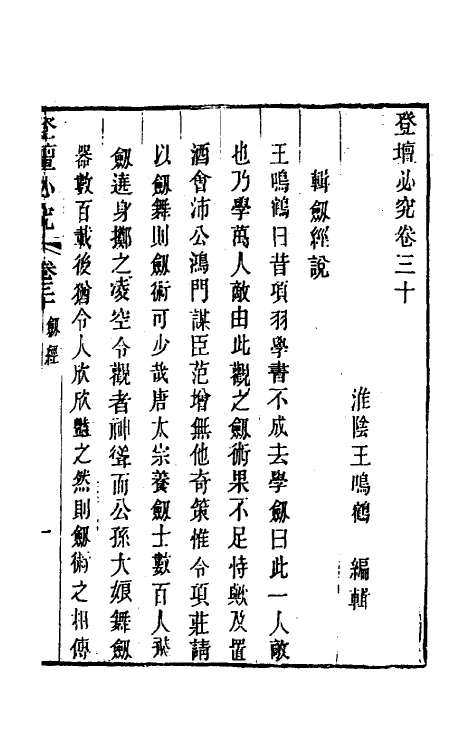 登壇必究卷三十
淮陰王鳴鶴 編輯
輯劔經說
王鳴鶴曰昔項羽學書不成去學劔曰此一人敵
也乃學萬人敵由此觀之劔術果不足恃歟及置
酒會沛公鴻門謀臣范增無他奇策惟令項莊請
以劔舞則劔術可少哉唐太宗養劔士數百人飛
劔遶身擲之凌空令觀者神聳而公孫大娘舞劔
器數百載後猶令人欣欣豔之然則劔術之相傳
登壇必究 卷三十 劔經 一